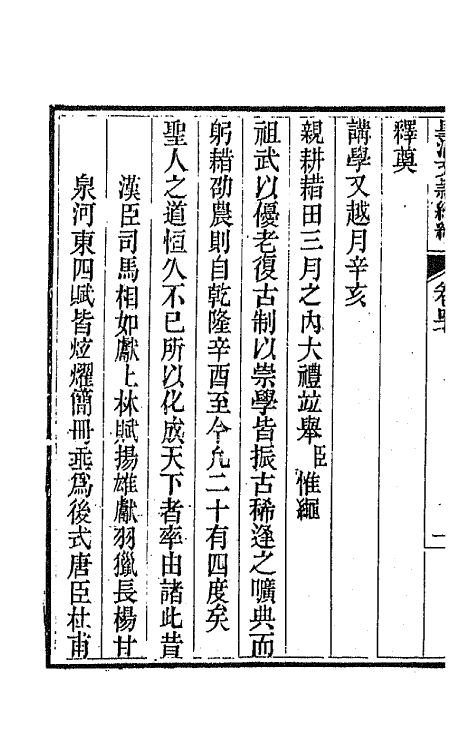 釋奠
講學又越月辛亥
親耕耤田三月之內大禮竝舉臣惟繩
祖武以優老復古制以崇學皆振古稀逢之曠典而
躬耤劭農則自乾隆辛酉至今凡二十有四度矣
聖人之道恒久不已所以化成天下者率由諸此昔
漢臣司馬相如獻上林賦揚雄獻羽獵長楊甘
泉河東四賦皆炫燿簡冊垂爲後式唐臣杜甫